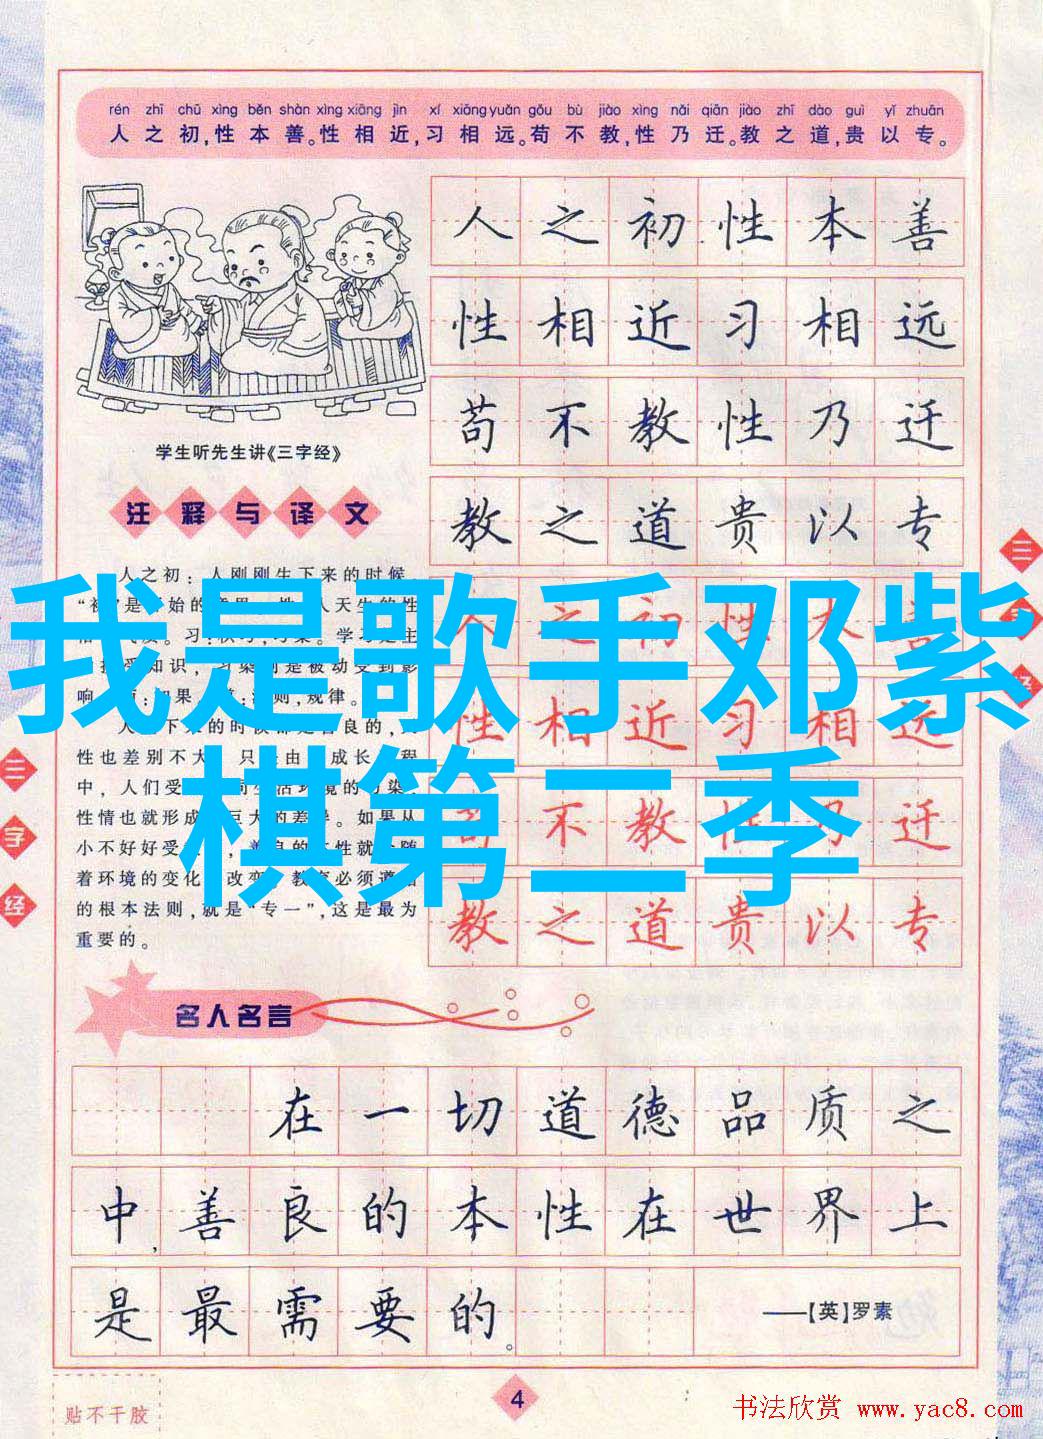 rén zhī chū xìng běn shàn xìng xiāng jìn xí xiāng yuǎn gǒu bù jiào xìng nǎi qiān jiào zhī dào guì yǐ zhuān
人之初,性本善。性相近,习相远。苟不教,性乃迁。教之道,贵以专。
人之初性本善
性相近习相远
苟不教性乃迁
教之道贵以专
学生听先生讲《三字经》
注释与译文
人之初:人刚刚生下来的时候。
我是歌手邓紫
棋第二季
性相近习相远
不教性乃迁
教之道贵以专
性也差别不大
中,人们受
性情也就形成
小不好好受
着环境的变化
的根本法则,就是“专一”,这是最为
重要的。
三
字
经
三
名人名言
在一切道德品质之
中,善良的本性在世界上
是最需要的。
——【英】罗素
贴不干胶
4
书法欣赏 www.yac8.com